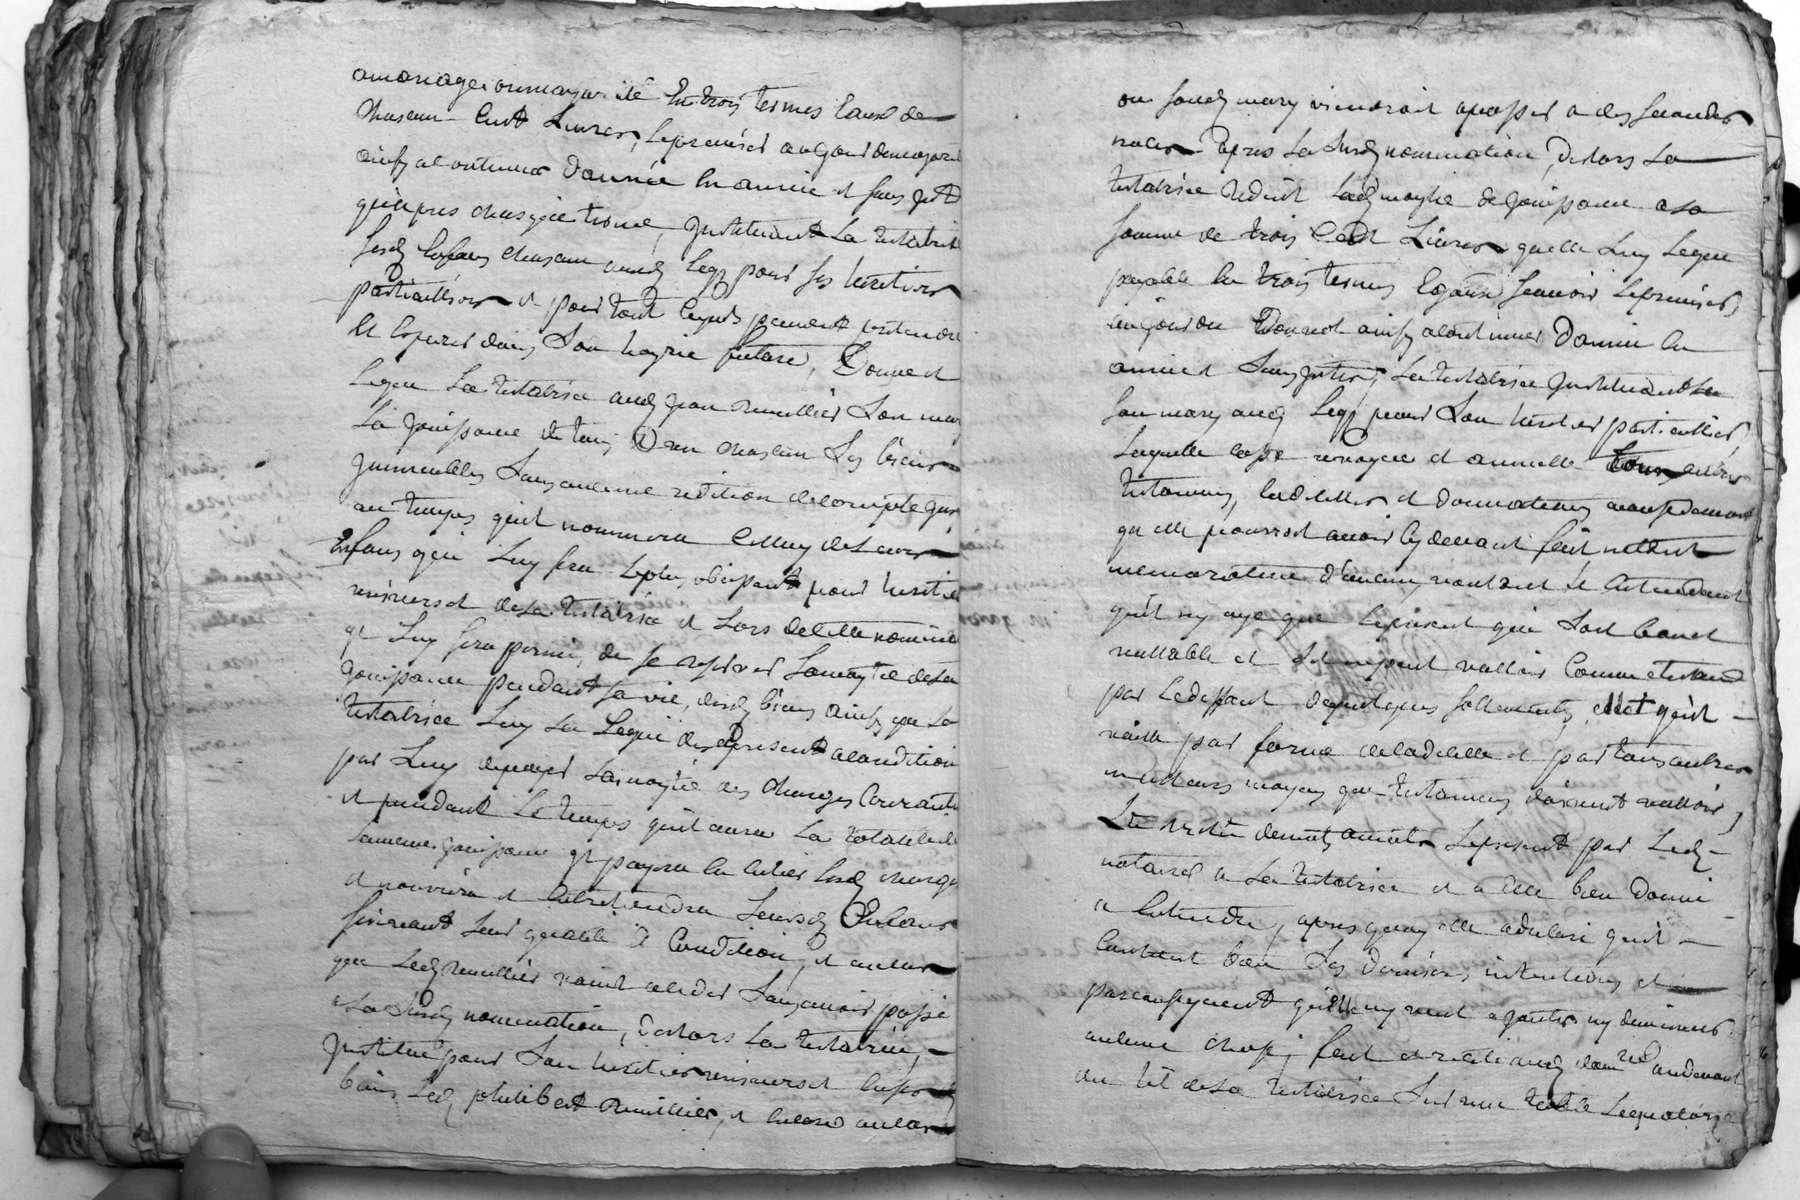 a mariage ou mayorité En trois termes Egaux de
Chascun Cent Livres, le premier au jour de mayorité
ainsy a continuer d'année en année et sans jntt
qu'apres chasque terme, jnstituant la testatrice
lesd Enfans chascun aud legz pour ses heritiers
particulliers et pour tout ce qu'ils peuvent pretendre
Et Esperer dans son hoyrie future, Donne et
Legue la testatrice aud jean Remillier son mary
la jouissance de tous Et un chascun ses biens
jmmeubles sans aucune redition de compte jusques
au temps qu'il nommera Celluy de leurs
Enfans qui luy sera le plus obeissant pour heritier
universel de la testatrice et lors de telle nomina
jl luy sera permis de se reserver la moytié de la
jouissance pendant sa vie, desd biens ainsy que la
testatrice luy la legue des apresent a condition
par luy de payer la moytié des charges Courants
et pendant le temps qu'il aura la totale de
la meme jouissance jl payera en entier lesd charges
et nourrira et Entretiendra leursd Enfans
suivant leur qualité & Condition, et au cas
que led Remillier vaint a deceder sans avoir passé
a la susd nomination, des lors la testatrice,
jnstitue pour son heritier universel en ses
biens led philibert Remillier, et encore au cas
ou sond mary viendroit a passer a des secondes
noces apres la susd nomination, des lors la
testatrice reduit lad moytié de jouissance a la
somme de trois Cent Livres qu'elle luy legue
payable en trois termes Egaux scavoir le premier
au jour du et ainsy a continuer d'année en
année et sans jntts, la testatrice jnstituant
son mary aud legz pour son heritier particullier,
laquelle casse revoque et annulle tous autres
testamens, codicilles et donnations a cause de mort
qu'elle pourroit avoir cy devant fait n'estant
memorative d'aucun voulant & Entendant
qu'il n'y aye que le present qui soit bon et
vallable et s'il ne peut valloir Comme testament
par le deffaut de quelques sollemnités, elle veut qu'il
vaille par forme de codicille et par tous autres
meilleurs moyens que testamens doivent valloir,
leu relu de mot a mot le present par led
notaire a la testatrice et a elle bien donné
a Entendre, apres quoy elle a declaré qu'il
Contient bien ses dernieres intentions et
par consequent qu'elle n'y veut ajouter ny diminuer
aucune chose, fait et recité aud lieu audevant
du lit de la testatrice sur une table le quatorze